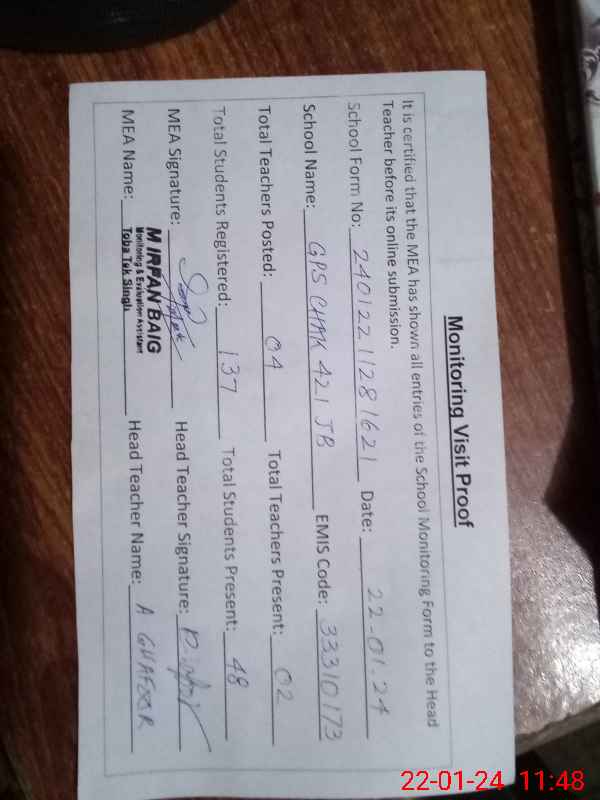 Monitoring Visit Proof
It is certified that the MEA has shown all entries of the School Monitoring Form to the Head
Teacher before its online submission.
School Form No: 24012211281621 Date: 22-01-24
School Name: GPS CHAK 421 JB EMIS Code: 33310173
Total Teachers Posted: 04 Total Teachers Present: 02
Total Students Registered: 137 Total Students Present: 48
MEA Signature: Head Teacher Signature:
MEA Name: M IRFAN BAIG Head Teacher Name: A GHAFOOR
Monitoring & Evaluation Assistant
Toba Tek Singh
22-01-24 11:48